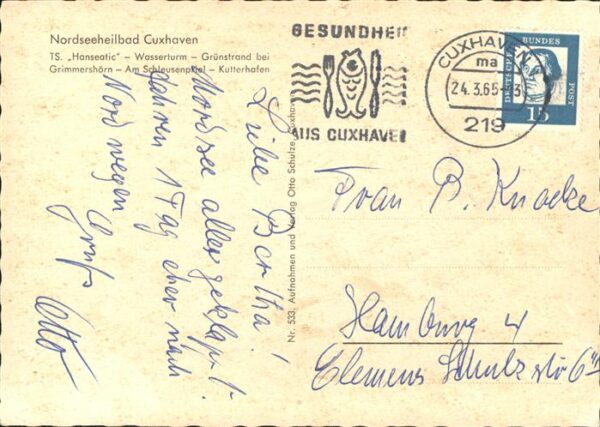 Nordseeheilbad Cuxhaven
TS. „Hanseatic" – Wasserturm – Grünstrand bei
Grimmershörn – Am Schleusenpriel – Kutterhafen
Liebe Bertha!
Nordsee alles geklappt.
fahren 1 Tag eher nach
Norwegen
Gruß
Otto
Nr. 533, Aufnahmen und Verlag Otto Schulze, Cuxhaven
GESUNDHEIT
AUS CUXHAVEN
CUXHAVEN
ma
24.3.65
219
DEUTSCHE BUNDES POST
15
Frau B. Knacke
Hamburg 4
Clemens Schultzstr